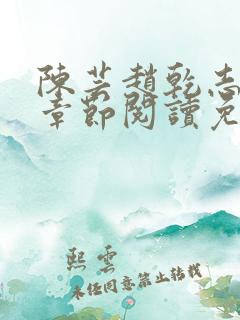 陳芸趙乾志
章節閱讀免
熙雲
未經同意禁止轉載